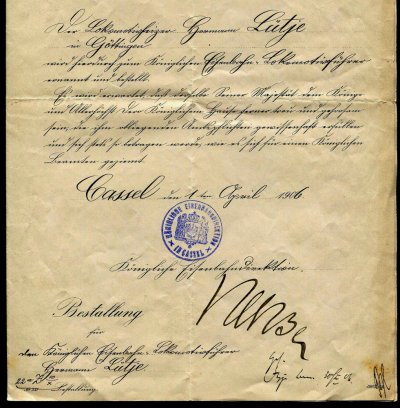 Der Lokomotivheizer Hermann Lütje
in Göttingen
wird hierdurch zum Königlichen Eisenbahn-Lokomotivführer
ernannt und bestellt.
Es wird erwartet, daß derselbe Seiner Majestät dem Könige
und Allerhöchst Dero Königlichem Hause ferner treu und gehorsam
sein, die ihm obliegenden Amtspflichten gewissenhaft erfüllen
und sich stets so betragen werde, wie es sich für einen Königlichen
Beamten geziemt.
Cassel den 1ten April 1906.
KÖNIGLICHE EISENBAHNDIREKTION
IN CASSEL
Königliche Eisenbahndirektion.
Bestallung
für
den Königlichen Eisenbahn-Lokomotivführer
Hermann Lütje
Bestallung